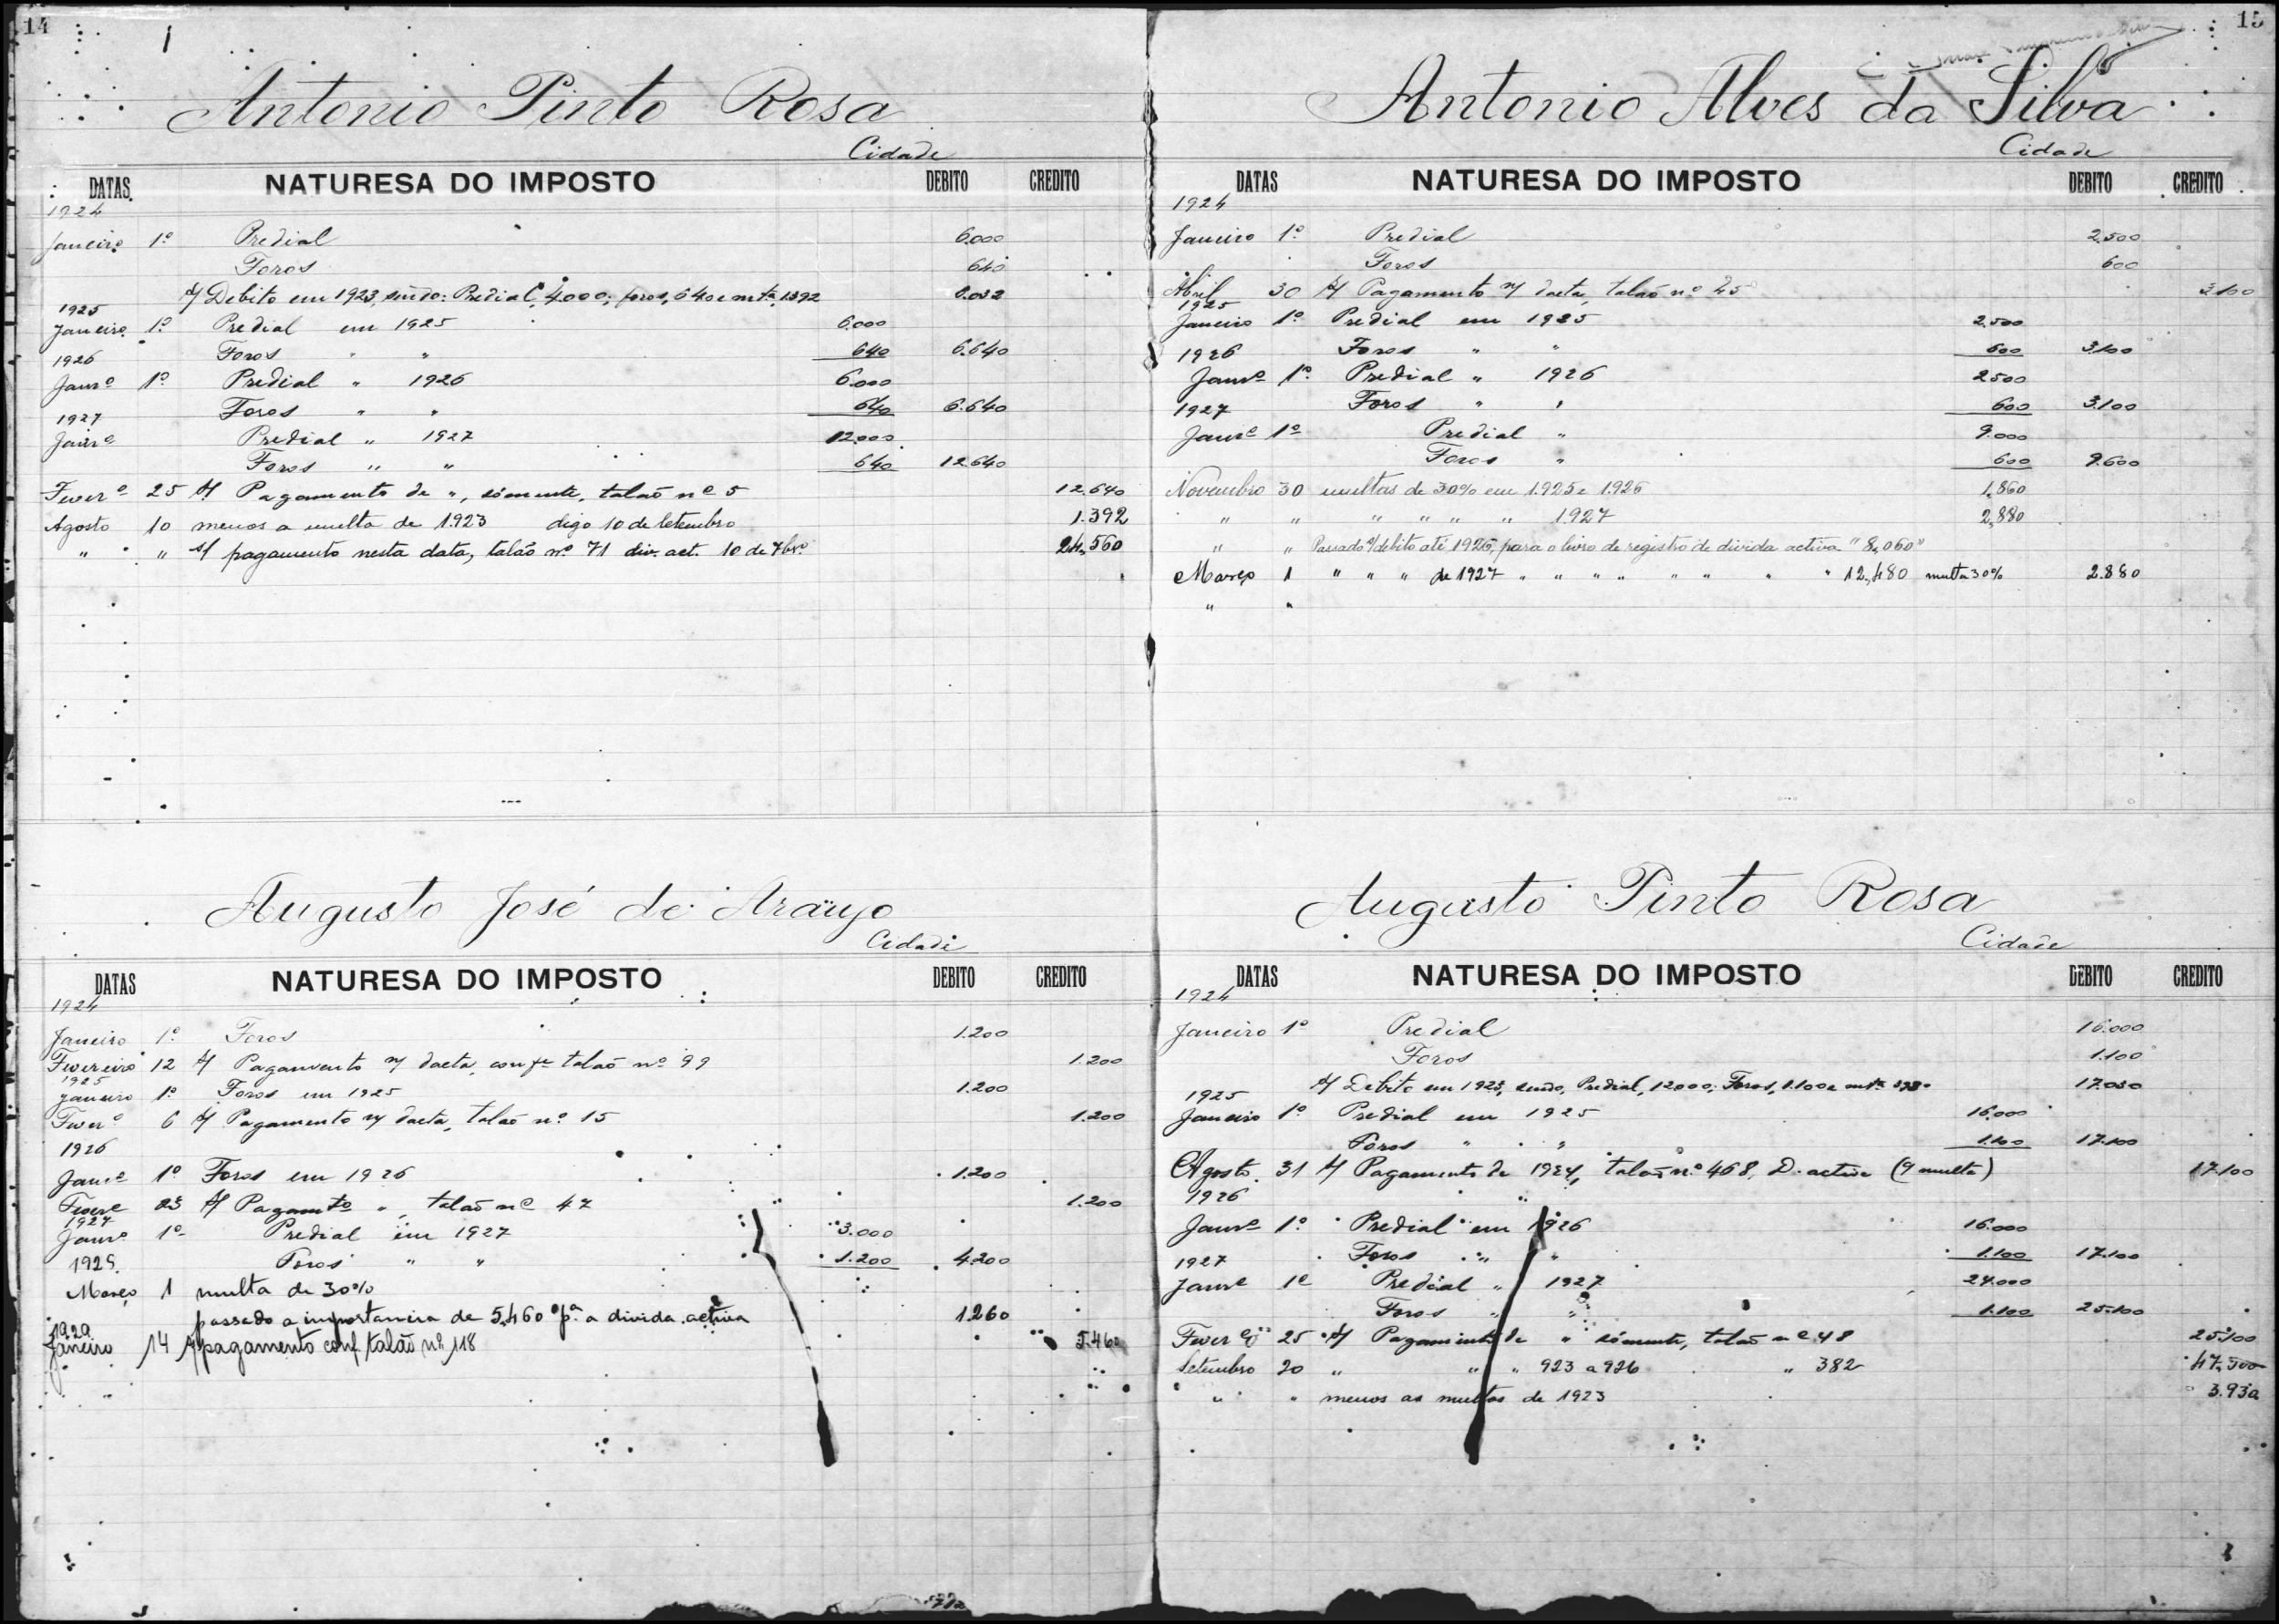 14
Antonio Pinto Rosa
Cidade
DATAS NATURESA DO IMPOSTO DEBITO CREDITO
1924
Janeiro 1º Predial 6.000
Foros 640
s/ Debito em 1923, sendo: Predial, 4.000; foros, 640 e mta 1392 6.032
1925
Janeiro 1º Predial em 1925 6.000
Foros " " 640 6.640
1926
Janrº 1º Predial " 1926 6.000
Foros " " 640 6.640
1927
Janrº Predial " 1927 12.000
Foros " " 640 12.640
Feverº 25 s/ Pagamento de ", sómente, talão nº 5 12.640
Agosto 10 menos a multa de 1.923 digo 10 de Setembro 1.392
" " s/ pagamento nesta data, talão nº 71 div. act. 10 de 7brº 24,560
Augusto José de Araujo
Cidade
DATAS NATURESA DO IMPOSTO DEBITO CREDITO
1924
Janeiro 1º Foros 1.200
Fevereiro 12 s/ Pagamento n/ dacta, confe talão nº 99 1.200
1925
Janeiro 1º Foros em 1925 1.200
Feverº 6 s/ Pagamento n/ dacta, talão nº 15 1.200
1926
Janrº 1º Foros em 1926 1.200
Feverº 23 s/ Pagamto ", talão nº 47 1.200
1927
Janrº 1º Predial em 1927 3.000
Foros " " 1.200 4.200
1928
Março 1 multa de 30%
passado a importancia de 5,460 pª a divida activa 1.260
1929
Janeiro 14 s/ pagamento conf. talão nº 118 5.460
15
Antonio Alves da Silva
Cidade
DATAS NATURESA DO IMPOSTO DEBITO CREDITO
1924
Janeiro 1º Predial 2.500
Foros 600
Abril 30 s/ Pagamento n/ dacta, talão nº 45 3.100
1925
Janeiro 1º Predial em 1925 2.500
Foros " " 600 3.100
1926
Janrº 1º Predial " 1926 2500
Foros " " 600 3.100
1927
Janrº 1º Predial " 9.000
Foros " 600 9.600
Novembro 30 multas de 30% em 1.925 e 1.926 1,860
" " " " " " 1.927 2,880
" " Passado s/ debito até 1926, para o livro de registro de divida activa "8,060"
Março 1 " " " de 1927 " " " " " " " " 12,480 multa 30% 2.880
" "
Augusto Pinto Rosa
Cidade
DATAS NATURESA DO IMPOSTO DEBITO CREDITO
1924
Janeiro 1º Predial 16.000
Foros 1.100
s/ Debito em 1923, sendo, Predial, 12000; Foros, 1.100 e mta 3930 17.030
1925
Janeiro 1º Predial em 1925 16.000
Foros " " 1.100 17.100
Agosto 31 s/ Pagamento de 1924, talão nº 468, D. activa (s/ multa) 17.100
1926
Janrº 1º Predial em 1926 16.000
Foros " " 1.100 17.100
1927
Janrº 1º Predial " 1927 24.000
Foros " " 1.100 25.100
Feverº 25 s/ Pagamento de " sómente, talão nº 48 25.100
Setembro 20 " " " 923 a 926 " 382 47,300
" " menos as multas de 1923 3.930